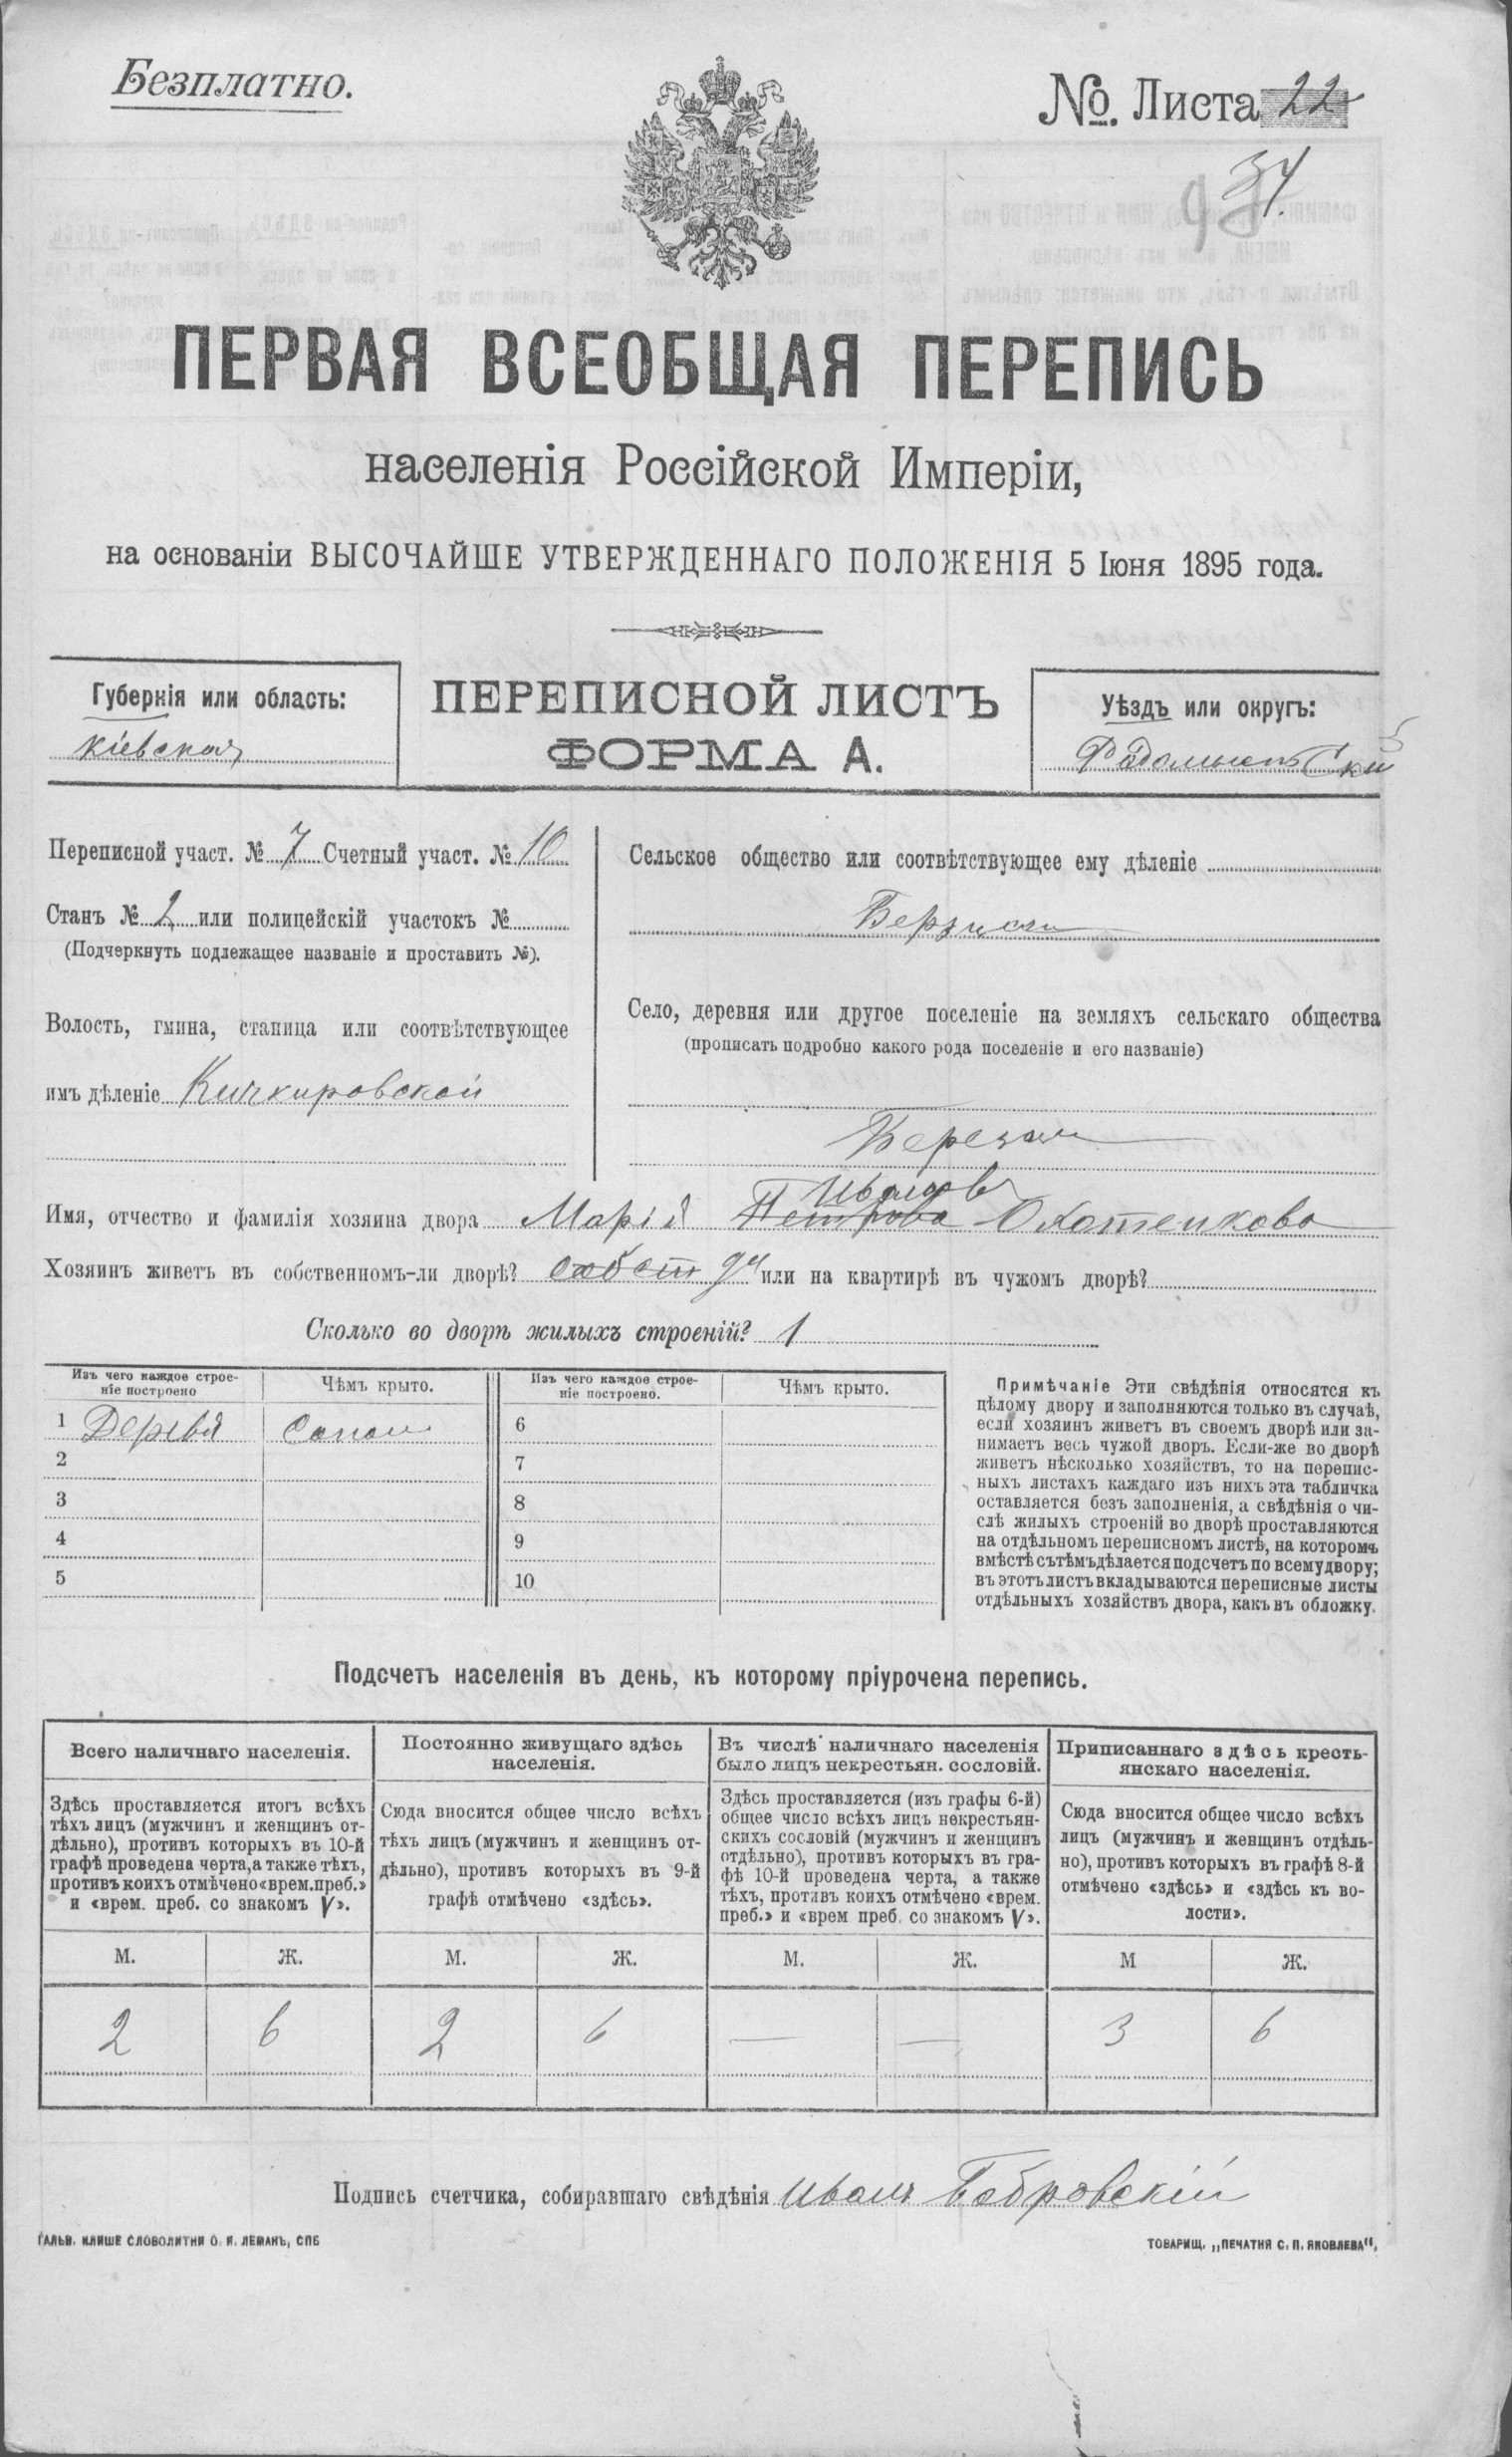 Безплатно.
№. Листа 22
34
ПЕРВАЯ ВСЕОБЩАЯ ПЕРЕПИСЬ
населенія Россійской Имперіи,
на основаніи ВЫСОЧАЙШЕ УТВЕРЖДЕННАГО ПОЛОЖЕНІЯ 5 Іюня 1895 года.
Губернія или область:
Кіевская
ПЕРЕПИСНОЙ ЛИСТЪ
ФОРМА А.
Уѣздъ или округъ:
Переписной участ. № 7 Счетный участ. № 10
Станъ № 2 или полицейскій участокъ №
(Подчеркнуть подлежащее названіе и проставить №).
Волость, гмина, станица или соотвѣтствующее
имъ дѣленіе Кичкировской
Сельское общество или соотвѣтствующее ему дѣленіе
Село, деревня или другое поселеніе на земляхъ сельскаго общества
(прописать подробно какого рода поселеніе и его названіе)
Имя, отчество и фамилія хозяина двора Марія Петрова
Хозяинъ живетъ въ собственномъ-ли дворѣ? или на квартирѣ въ чужомъ дворѣ?
Сколько во дворѣ жилыхъ строеній? 1
Изъ чего каждое строе-
ніе построено
Чѣмъ крыто.
Изъ чего каждое строе-
ніе построено.
Чѣмъ крыто.
1 Деревя
2
3
4
5
6
7
8
9
10
Примѣчаніе Эти свѣдѣнія относятся къ
цѣлому двору и заполняются только въ случаѣ,
если хозяинъ живетъ въ своемъ дворѣ или за-
нимаетъ весь чужой дворъ. Если-же во дворѣ
живетъ нѣсколько хозяйствъ, то на перепис-
ныхъ листахъ каждаго изъ нихъ эта табличка
оставляется безъ заполненія, а свѣдѣнія о чи-
слѣ жилыхъ строеній во дворѣ проставляются
на отдѣльномъ переписномъ листѣ, на которомъ
вмѣстѣ съ тѣмъ дѣлается подсчетъ по всему двору;
въ этотъ листъ вкладываются переписные листы
отдѣльныхъ хозяйствъ двора, какъ въ обложку.
Подсчетъ населенія въ день, къ которому пріурочена перепись.
Всего наличнаго населенія.
Здѣсь проставляется итогъ всѣхъ
тѣхъ лицъ (мужчинъ и женщинъ от-
дѣльно), противъ которыхъ въ 10-й
графѣ проведена черта, а также тѣхъ,
противъ коихъ отмѣчено «врем. преб.»
и «врем. преб. со знакомъ V».
М. Ж.
2 6
Постоянно живущаго здѣсь
населенія.
Сюда вносится общее число всѣхъ
тѣхъ лицъ (мужчинъ и женщинъ от-
дѣльно), противъ которыхъ въ 9-й
графѣ отмѣчено «здѣсь».
М. Ж.
2 6
Въ числѣ наличнаго населенія
было лицъ некрестьян. сословій.
Здѣсь проставляется (изъ графы 6-й)
общее число всѣхъ лицъ некрестьян-
скихъ сословій (мужчинъ и женщинъ
отдѣльно), противъ которыхъ въ гра-
фѣ 10-й проведена черта, а также
тѣхъ, противъ коихъ отмѣчено «врем.
преб.» и «врем преб. со знакомъ V».
М. Ж.
— —
Приписаннаго здѣсь кресть-
янскаго населенія.
Сюда вносится общее число всѣхъ
лицъ (мужчинъ и женщинъ отдѣль-
но), противъ которыхъ въ графѣ 8-й
отмѣчено «здѣсь» и «здѣсь къ во-
лости».
М Ж.
3 6
Подпись счетчика, собиравшаго свѣдѣнія Иванъ Бобровскій
ГАЛЬВ. КЛИШЕ СЛОВОЛИТНИ О. И. ЛЕМАНЪ, СПБ
ТОВАРИЩ. „ПЕЧАТНЯ С. П. ЯКОВЛЕВА",